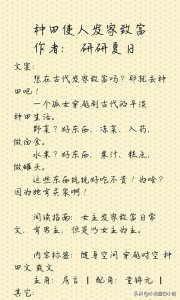 种田使人发家致富
作者： 研研夏日
文案：
想在古代发家致富吗？那就去种
田吧！
一个孤女穿越到古代的平淡
种田生活。
野菜？好东西，凉菜、入药、
做面食。
水果？好东西，果汁、糕点、
做罐头。
这些东西统统好吃不贵！为啥？
因为她有灵泉啊！
阅读指南：女主发家致富日常
文，有男主，但是以女主为主。
内容标签：随身空间 穿越时空 种
田文 爽文
主角：房言 ┃ 配角：童锦元 ┃
其它：